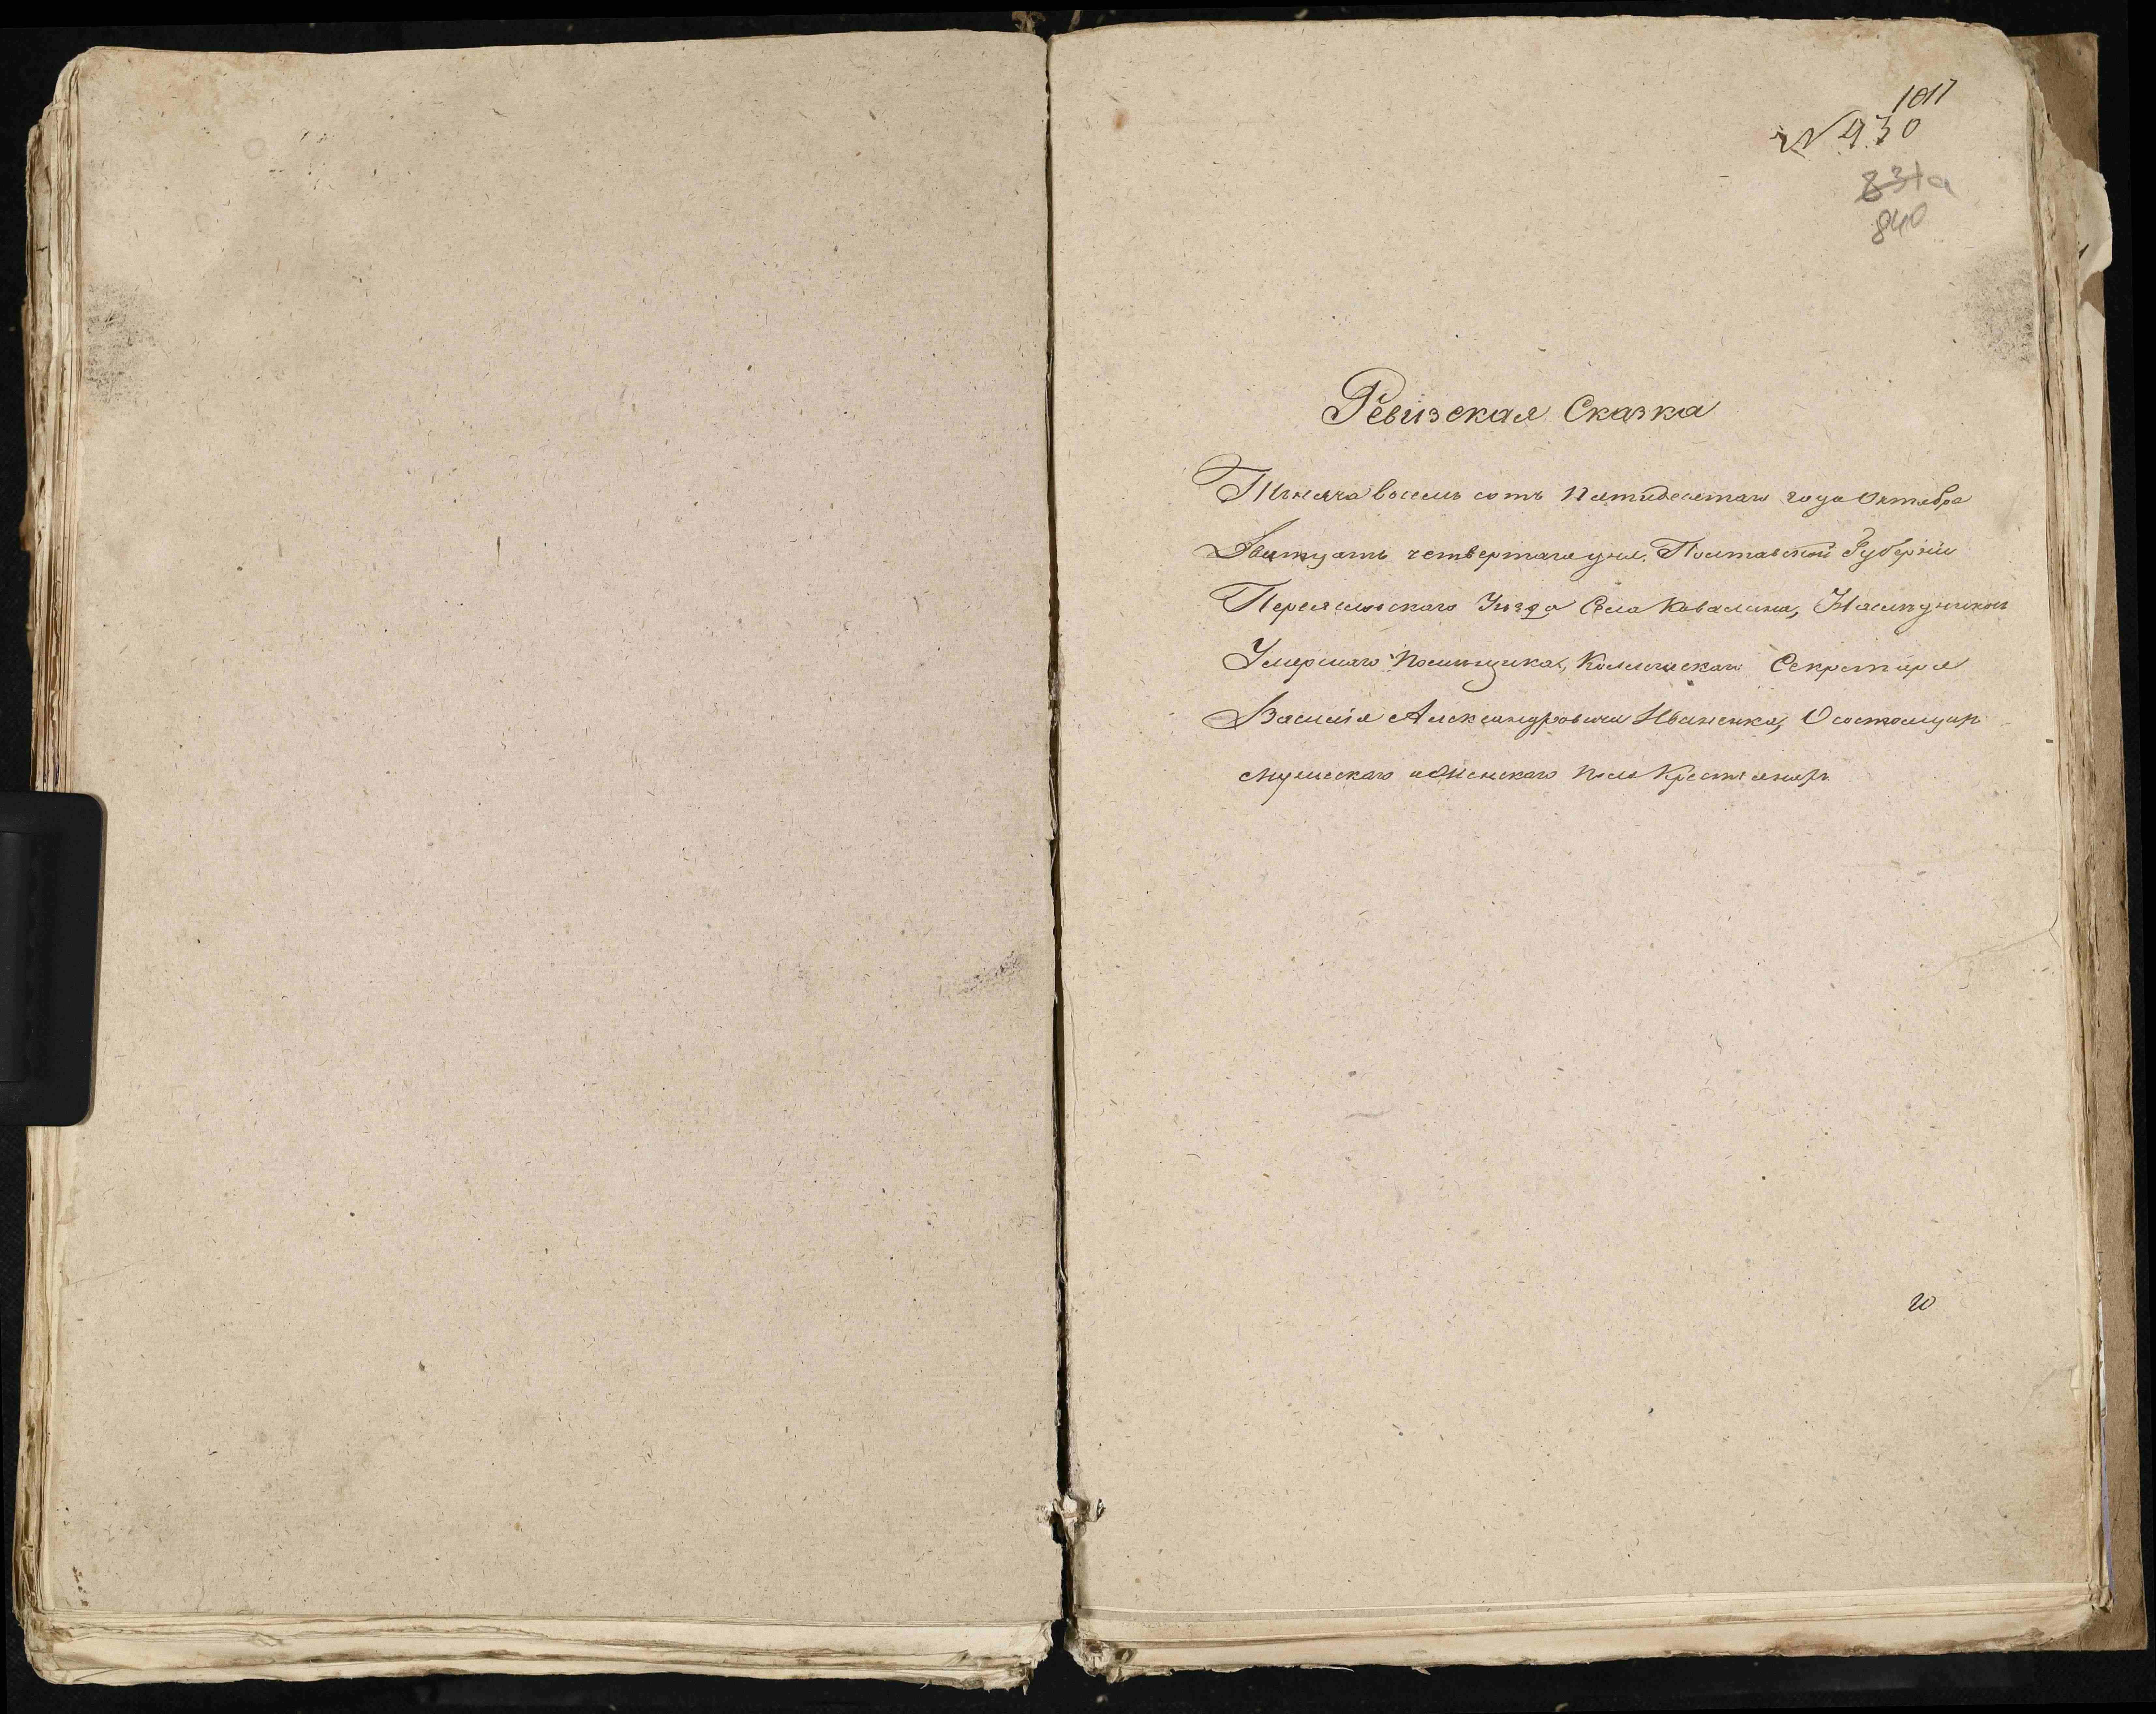 1017
№ 930
831а
840
Ревизская Сказка
Тысяча восемь сотъ пятидесятаго года Октября
Двятцать четвертаго дня, Полтавской Губерніи
Переяславскаго Уезда Села Ковалина, Наследниковъ
Умершаго помещика, Коллежскаго Секретаря
Василія Александровича Иваненка, О состоящихъ
мужескаго и женскаго пола Крестьянахъ